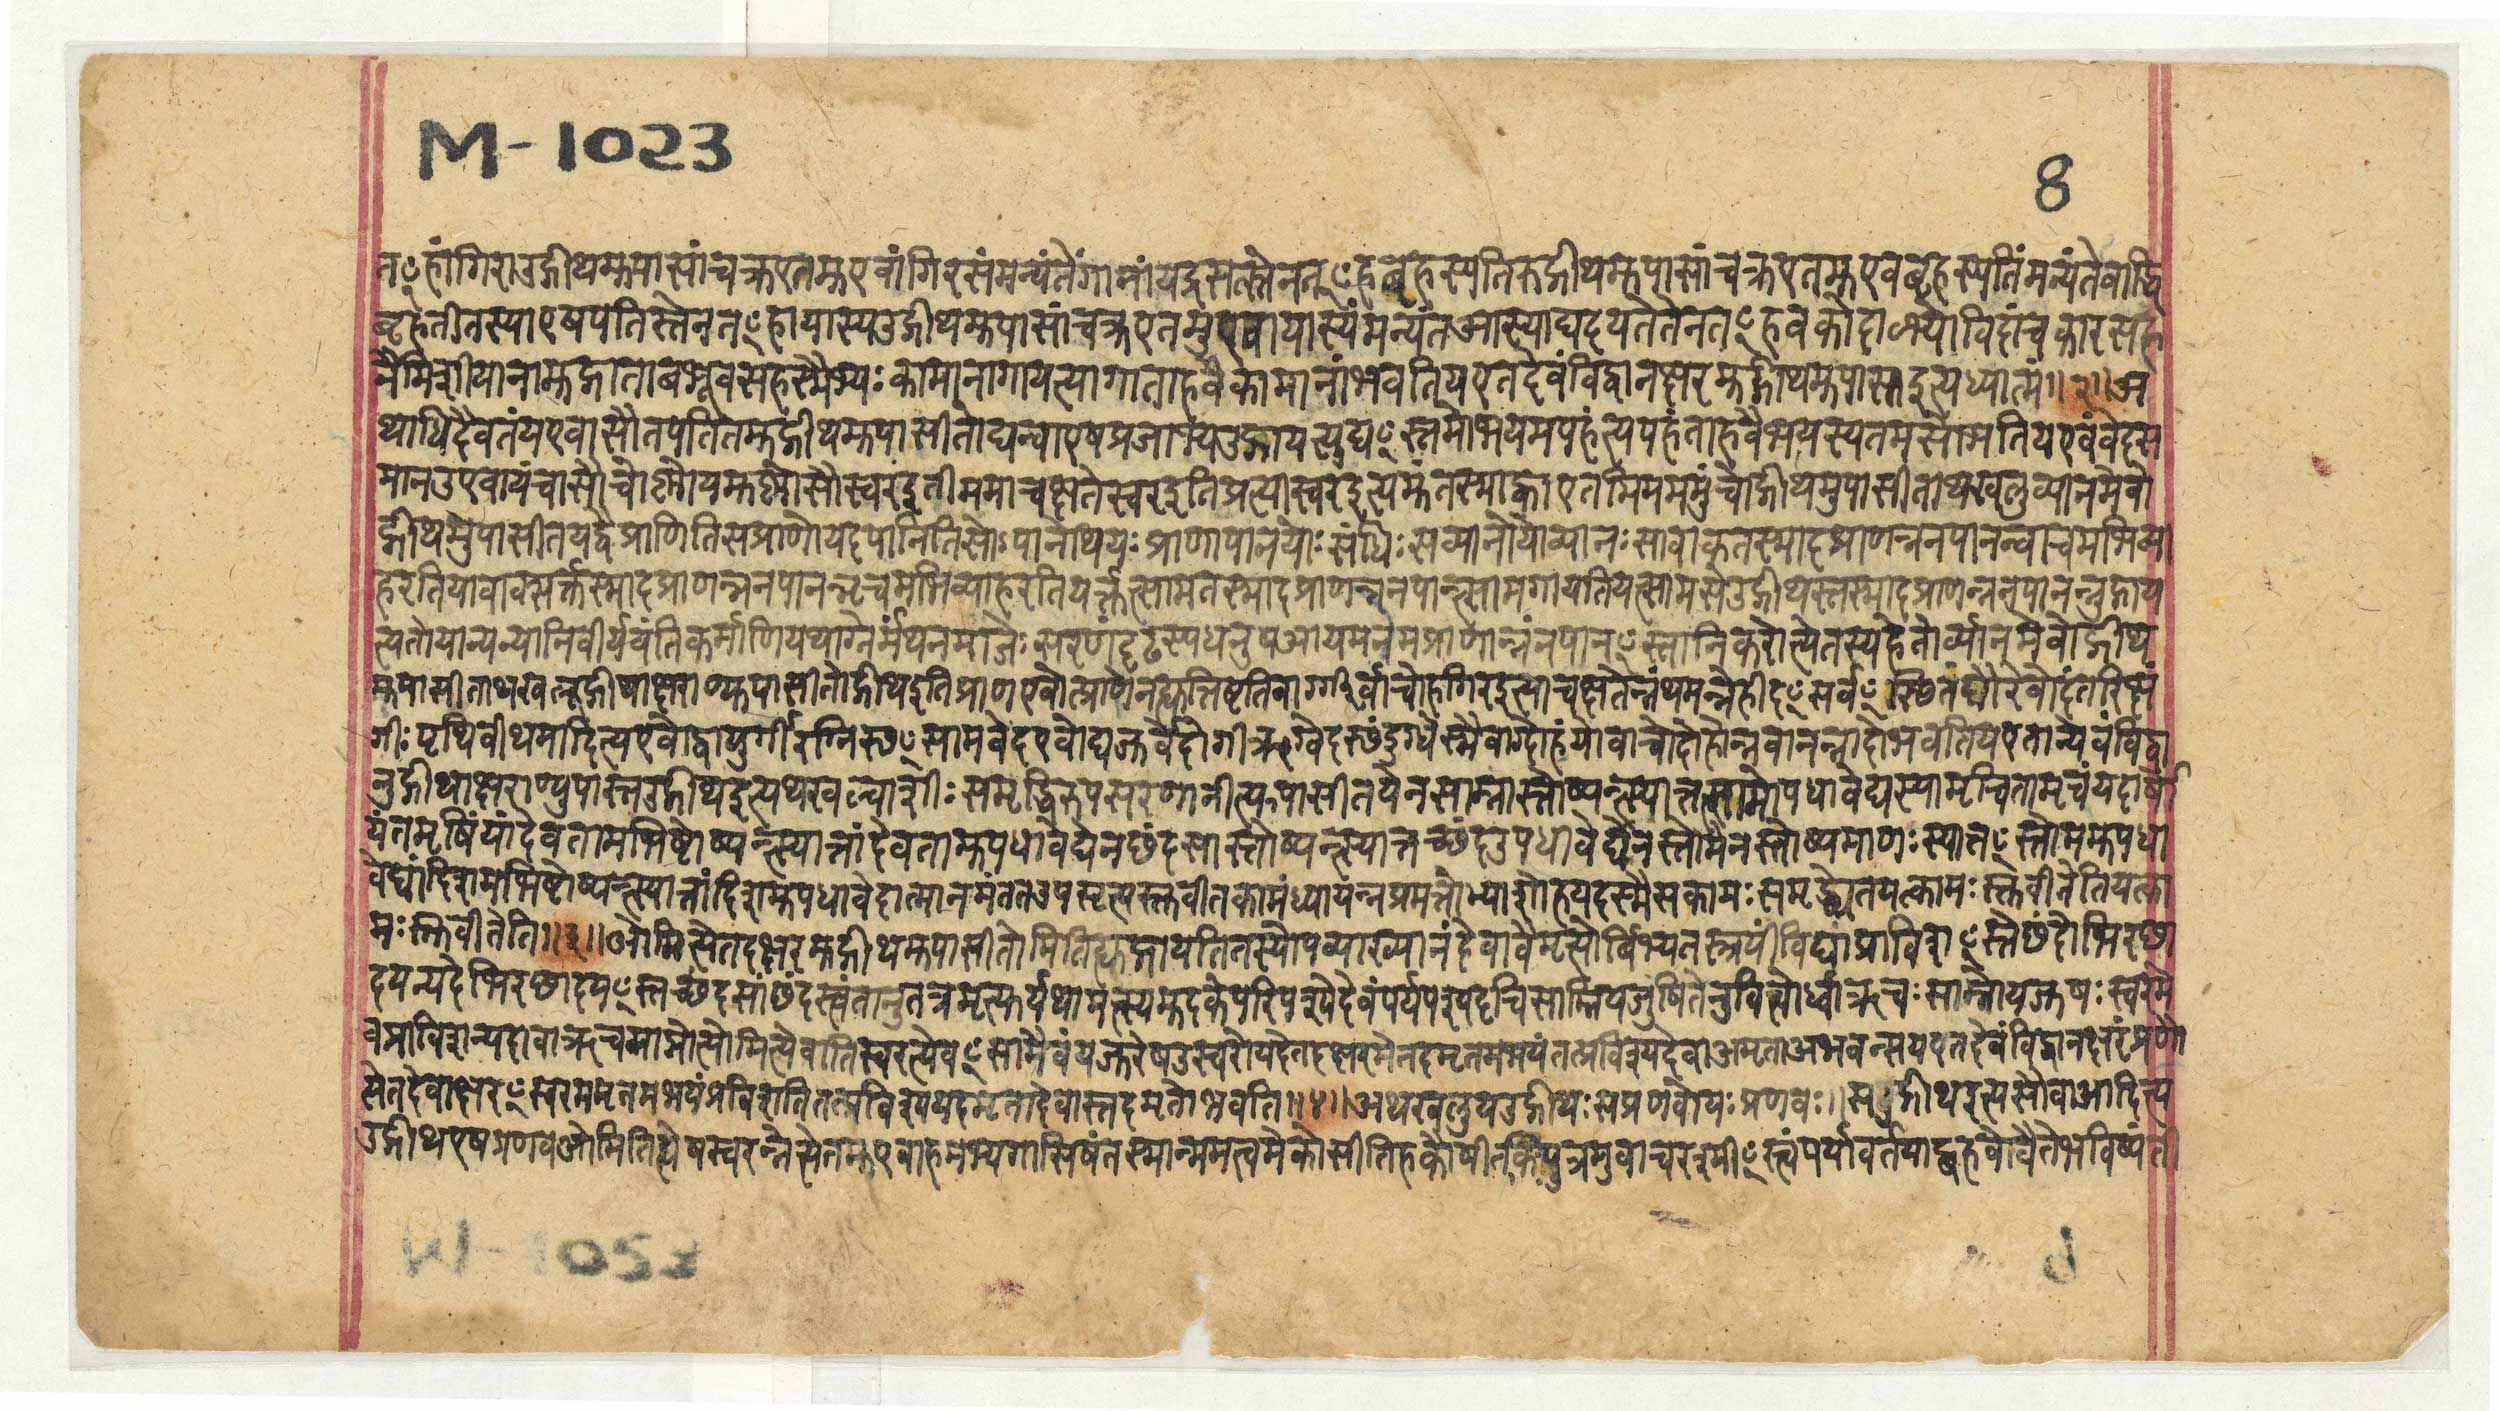 M-1023
8
तꣳहांगिराउद्गीथमुपासांचक्रएतमुएवांगिरसंमन्यंतेंगानांयद्रसस्तेनतꣳहबृहस्पतिरुद्गीथमुपासांचक्रएतमुएवबृहस्पतिंमन्यंतेवाग्घि
बृहतीतस्याएषपतिस्तेनतꣳहायास्यउद्गीथमुपासांचक्रएतमुएवायास्यंमन्यंतआस्याद्यदयतेतेनतꣳहबकोदाल्भ्योविदांचकारसह
नैमिशीयानामुद्गाताबभूवसहस्मैभ्यःकामानागायत्यागाताहवैकामानांभवतियएतदेवंविद्वानक्षरमुद्गीथमुपास्तइत्यध्यात्मं॥२॥अ
थाधिदैवतंयएवासौतपतितमुद्गीथमुपासीतोद्यन्वाएषप्रजाभ्यउद्गायत्युद्यꣳस्तमोभयमपहंत्यपहंताहवैभयस्यतमसोभवतियएवंवेदस
मानउएवायंचासौचोष्णोयमुष्णोसौस्वरइतीममाचक्षतेस्वरइतिप्रत्यास्वरइत्यमुंतस्माद्वाएतमिमममुंचोद्गीथमुपासीताथखलुव्यानमेवो
द्गीथमुपासीतयद्वैप्राणितिसप्राणोयदपानितिसोपानोथयःप्राणापानयोःसंधिःसव्यानोयोव्यानःसावाक्तस्मादप्राणन्ननपानन्वाचमभिव्या
हरतियावाक्सर्क्तस्मादप्राणन्ननपानन्नृचमभिव्याहरतियर्क्तत्सामतस्मादप्राणन्ननपानन्सामगायतियत्सामसउद्गीथस्तस्मादप्राणन्ननपानन्नुद्गाय
त्यतोयान्यन्यानिवीर्यवंतिकर्माणियथाग्नेर्मंथनमाजेःसरणंदृढस्यधनुषआयमनमप्राणन्ननपानꣳस्तानिकरोत्येतस्यहेतोर्व्यानमेवोद्गीथ
मुपासीताथखलूद्गीथाक्षराण्युपासीतोद्गीथइतिप्राणएवोत्प्राणेनह्युत्तिष्ठतिवाग्गीर्वाचोहगिरइत्याचक्षतेन्नंथमन्नेहीदꣳसर्वꣳस्थितंद्यौरेवोदंतरिक्षं
गीःपृथिवीथमादित्यएवोद्वायुर्गीरग्निस्थꣳसामवेदएवोद्यजुर्वेदोगीऋग्वेदस्थंदुग्धेस्मैवाग्दोहंयोवाचोदोहोन्नवानन्नादोभवतियएतान्येवंविद्वा
नुद्गीथाक्षराण्युपास्तउद्गीथइत्यथखल्वाशीःसमृद्धिरुपसरणानीत्युपासीतयेनसाम्नास्तोष्यन्स्यात्तत्सामोपधावेद्यस्यामृचितामृचंयदार्षे
यंतमृषिंयांदेवतामभिष्टोष्यन्स्यात्तांदेवतामुपधावेद्येनछंदसास्तोष्यन्स्यात्तच्छंदउपधावेद्येनस्तोमेनस्तोष्यमाणःस्यात्तꣳस्तोममुपधा
वेद्यांदिशमभिष्टोष्यन्स्यात्तांदिशमुपधावेदात्मानमंततउपसृत्यस्तुवीतकामंध्यायन्नप्रमत्तोभ्याशोहयदस्मैसकामःसमृद्ध्येतयत्कामःस्तुवीतेतियत्का
मःस्तुवीतेति॥३॥ओमित्येतदक्षरमुद्गीथमुपासीतोमितिह्युद्गायतितस्योपव्याख्यानंदेवावैमृत्योर्बिभ्यतस्त्रयींविद्यांप्राविशꣳस्तेछंदोभिरछा
दयन्यदेभिरछादयꣳस्तच्छंदसांछंदस्त्वंतानुतत्रमृत्युर्यथामत्स्यमुदकेपरिपश्येदेवंपर्यपश्यदृचिसाम्नियजुषितेनुवित्वोर्ध्वाऋचःसाम्नोयजुषःस्वरमे
वप्राविशन्यदावाऋचमाप्नोत्योमित्येवातिस्वरत्येवꣳसामैवंयजुरेषउस्वरोयदेतदक्षरमेतदमृतमभयंतत्प्रविश्यदेवाअमृताअभवन्सयएतदेवंविद्वानक्षरंप्रणौ
त्येतदेवाक्षरꣳस्वरममृतमभयंप्रविशतितत्प्रविश्ययदमृतादेवास्तदमृतोभवति॥४॥अथखलुयउद्गीथःसप्रणवोयःप्रणवः॥सउद्गीथइत्यसौवाआदित्य
उद्गीथएषप्रणवओमितिह्येषस्वरन्नेत्येतमुएवाहमभ्यगासिषंतस्मान्ममत्वमेकोसीतिहकौषीतकिःपुत्रमुवाचरश्मीꣳस्त्वंपर्यावर्तयाद्बहवोवैतेभविष्यंती